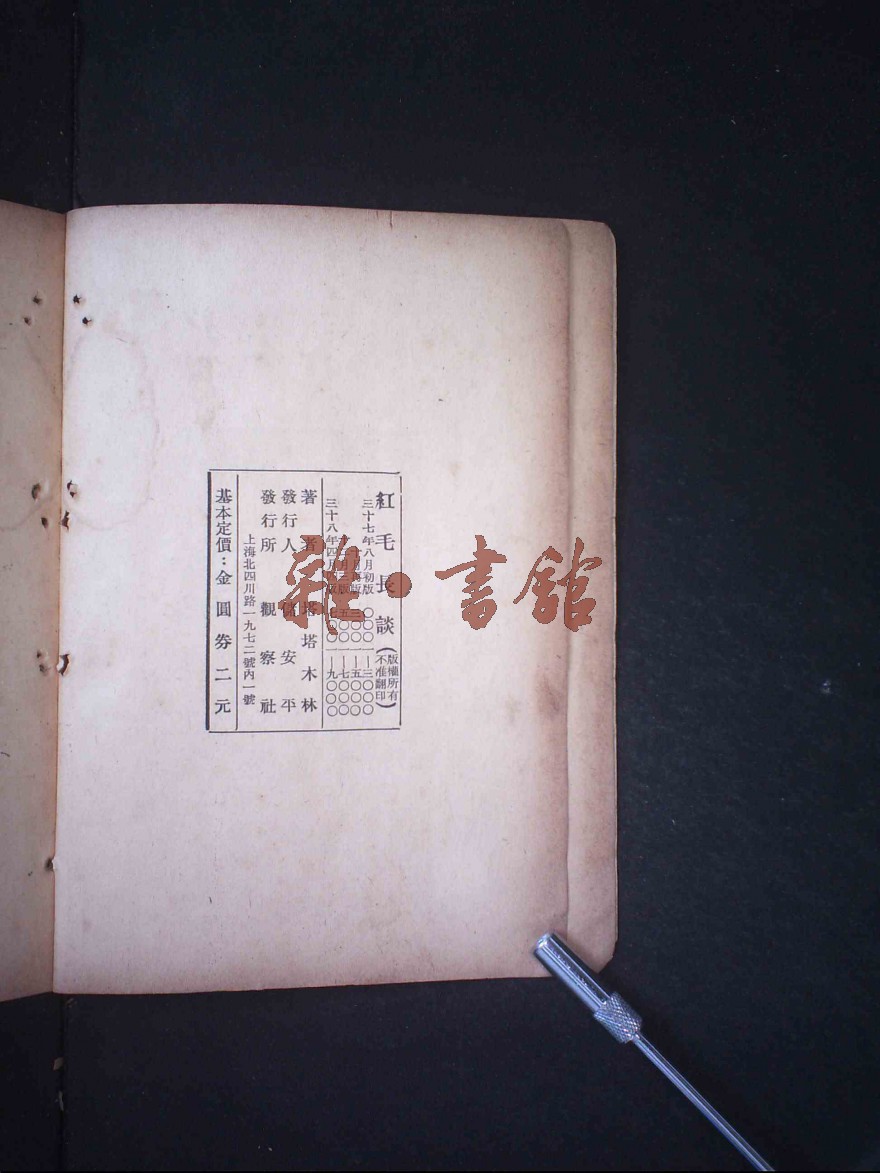 紅毛長談(版權所有不准翻印)
三十七年八月初版 〇〇〇一—三〇〇〇
三十八年四月
著者 塔塔木林
發行人 儲安平
發行所 觀察社
上海北四川路一九七二號內一號
基本定價：金圓券二元
雜·書館